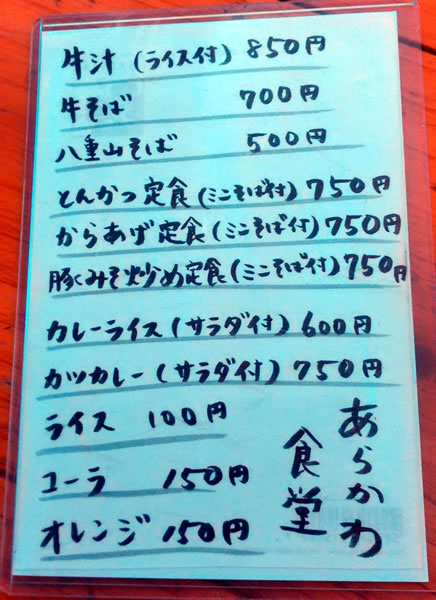 牛汁 (ライス付) 850円
牛そば 700円
八重山そば 500円
とんかつ定食 (ミニそば付) 750円
からあげ定食 (ミニそば付) 750円
豚くみそ炒め定食 (ミニそば付) 750円
カレーライス (サラダ付) 600円
カツカレー (サラダ付) 750円
ライス 100円
コーラ 150円
オレンジ 150円
あらかわ
食堂